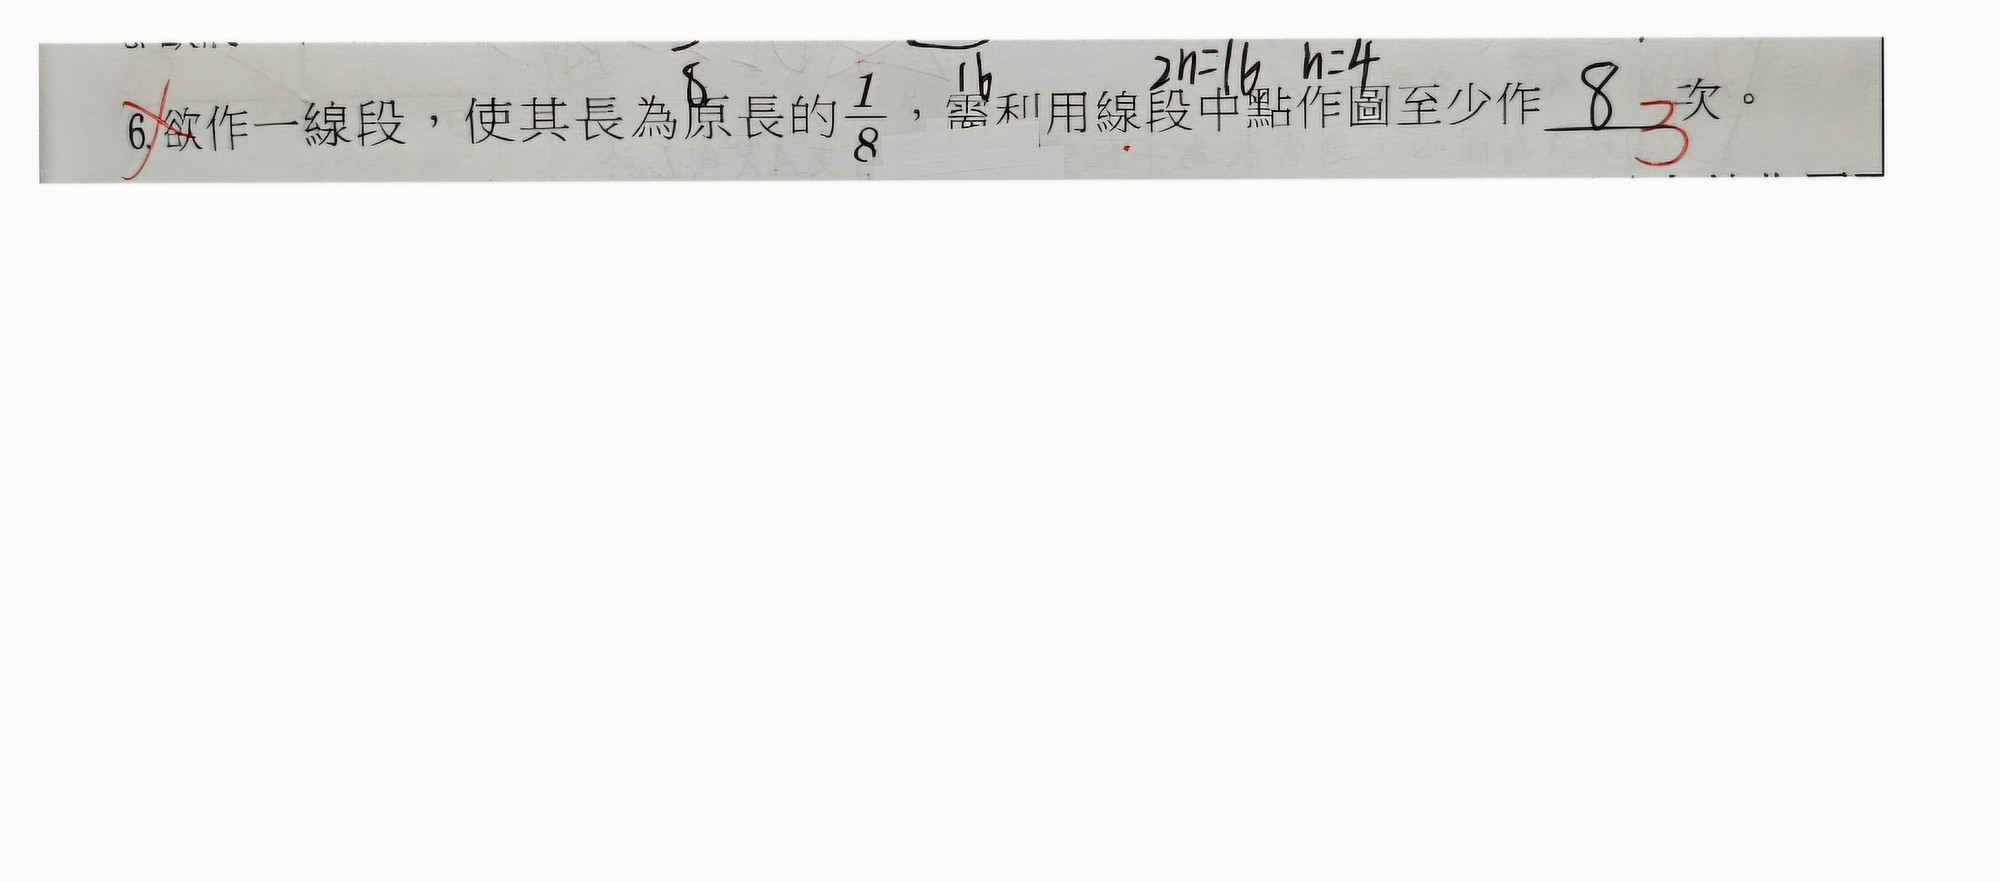 8 16 2n=16 n=4
6. 欲作一線段，使其長為原長的 1/8 ，需利用線段中點作圖至少作 8 3 次。